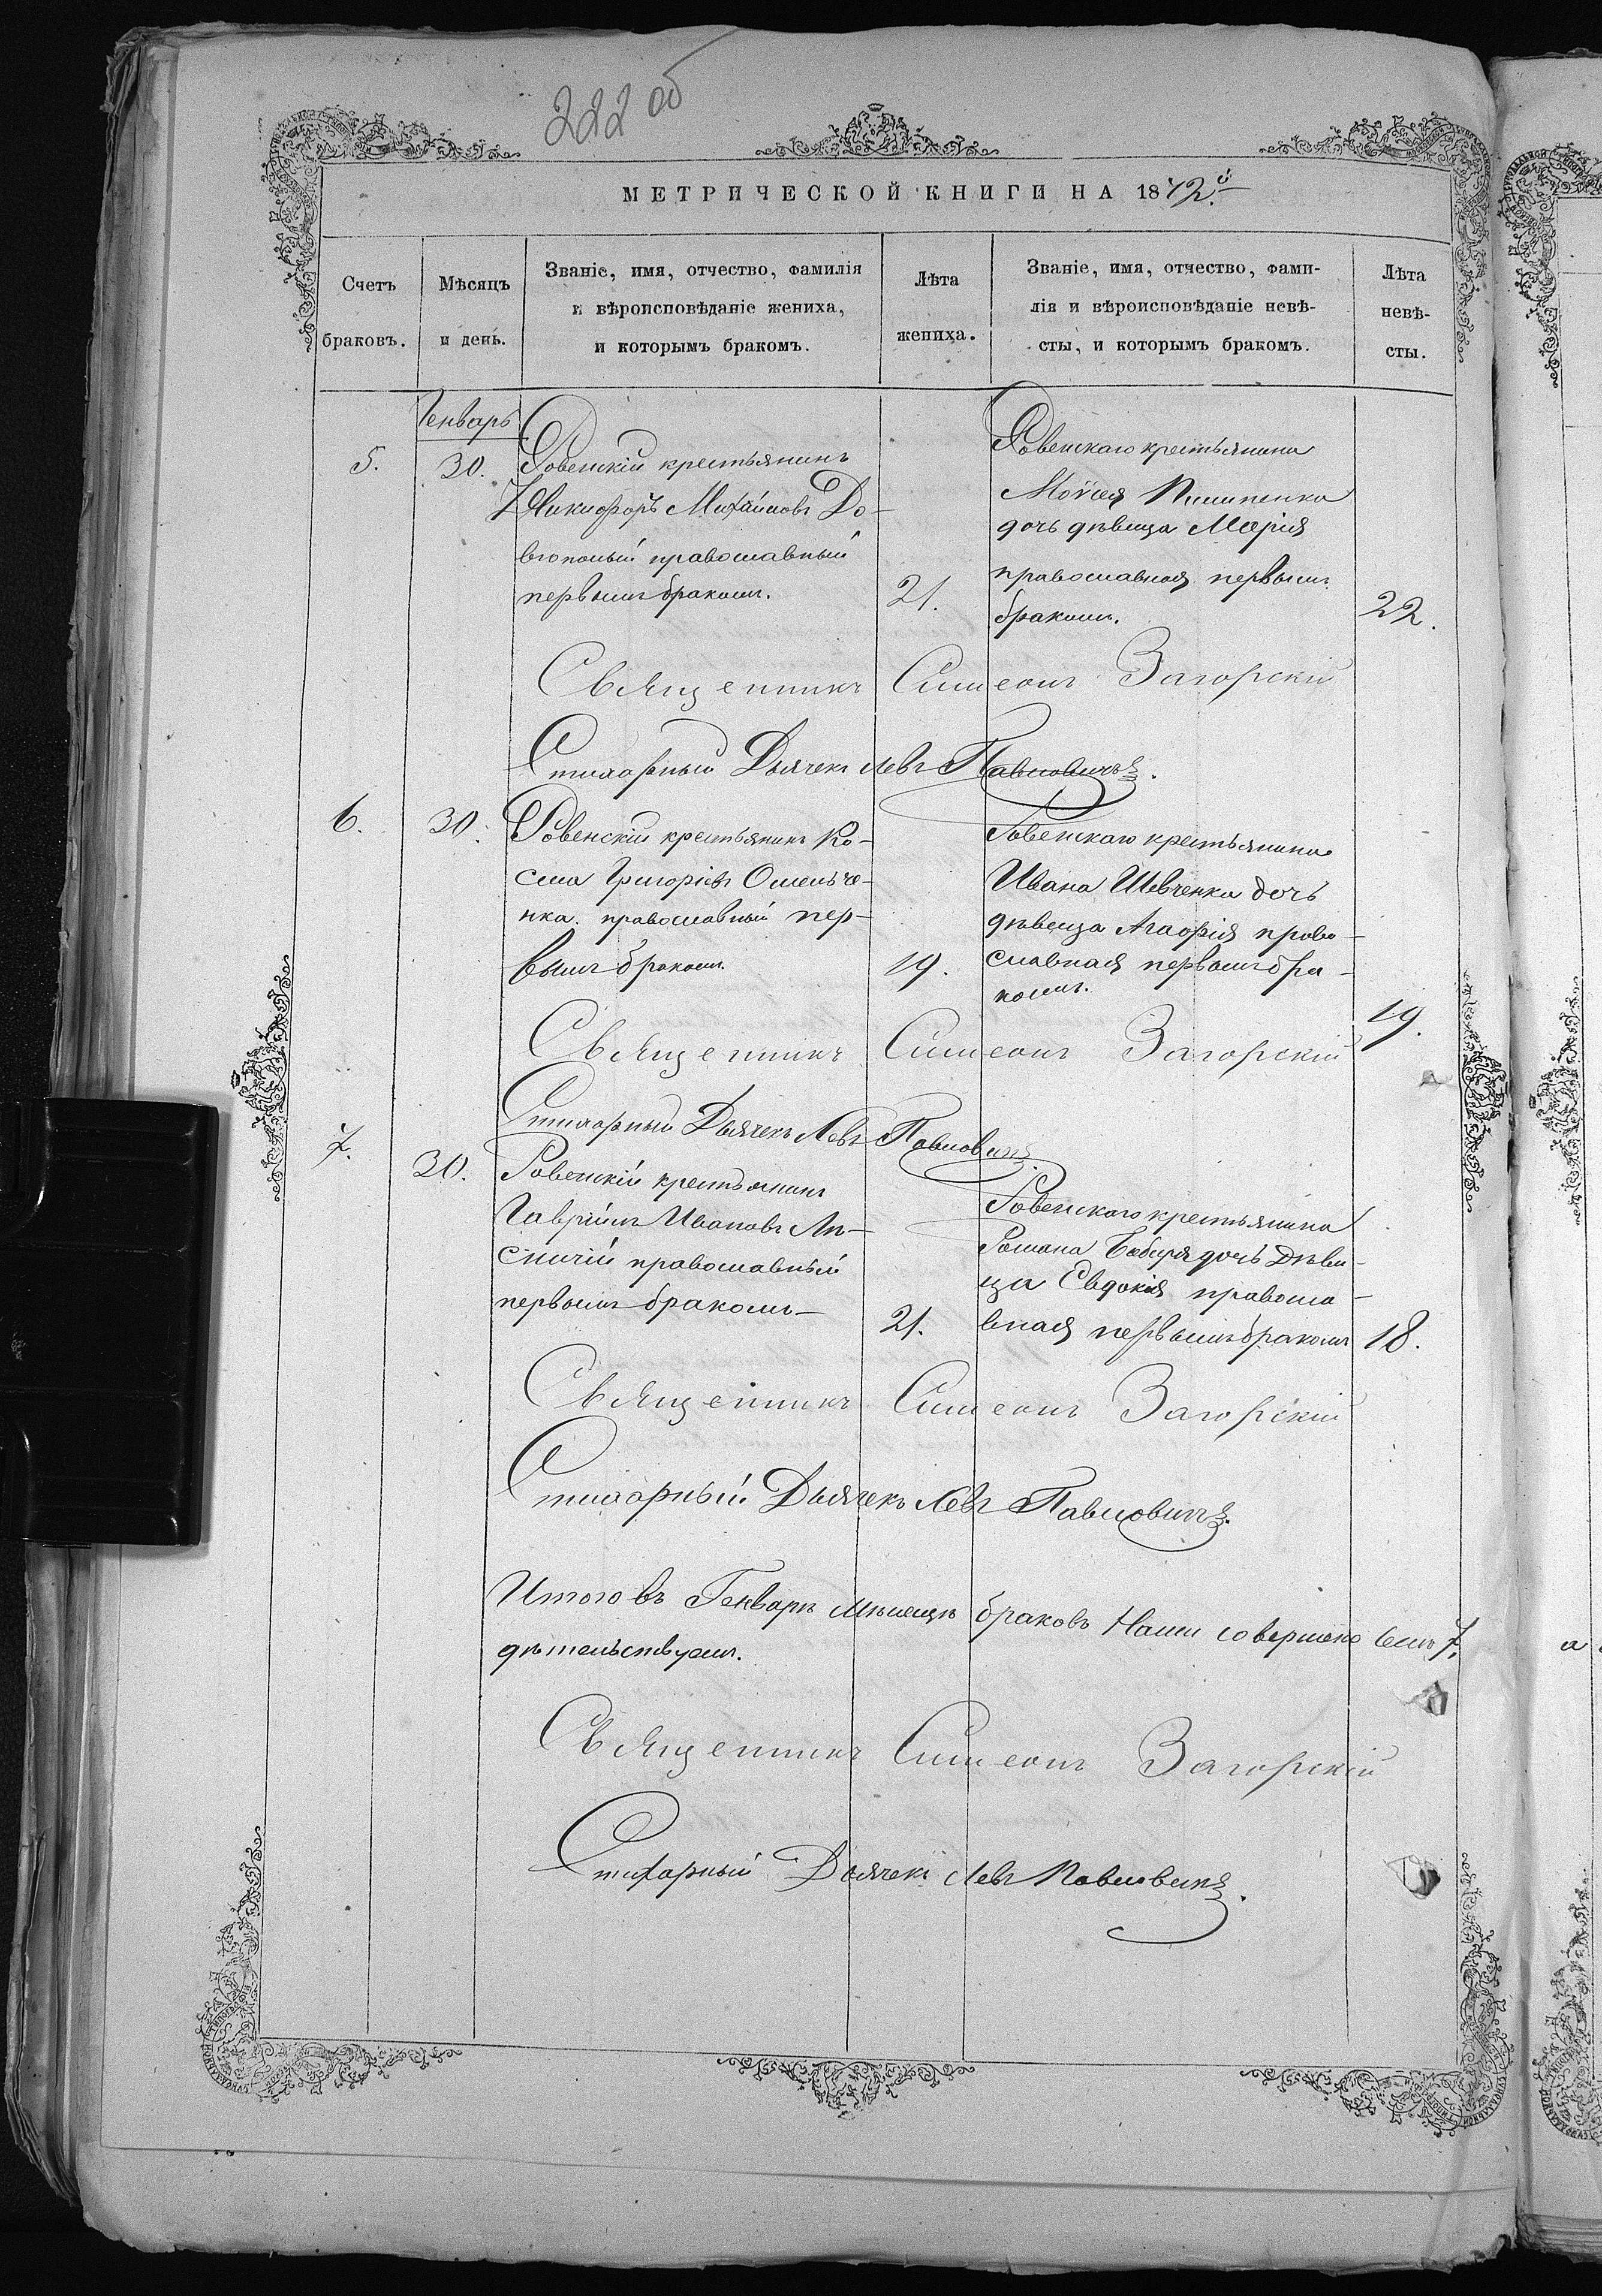 222 об
МЕТРИЧЕСКОЙ КНИГИ НА 1872.й
Счетъ браковъ.
Мѣсяцъ и день.
Званіе, имя, отчество, фамилія
и вѣроисповѣданіе жениха,
и которымъ бракомъ.
Лѣта жениха.
Званіе, имя, отчество, фами-
лія и вѣроисповѣданіе невѣ-
сты, и которымъ бракомъ.
Лѣта невѣ-
сты.
Генварь
5.
30.
Ровенскій крестьянинъ
Никифоръ Михайловъ До-
православный
первымъ бракомъ.
21.
Ровенскаго крестьянина
Моѵсея Пилипенка
дочь дѣвица Марія
православная первымъ
бракомъ.
22.
Священникъ Симеонъ Загорскій
Стихарный Дьячекъ Левъ Павловичъ.
6.
30.
Ровенскій крестьянинъ Ко-
сма Григоріевъ Омельче-
нка. православный пер-
вымъ бракомъ.
19.
Ровенскаго крестьянина
Ивана Шевченка дочь
дѣвица Агафія право-
славная первымъ бра-
комъ.
19.
Священникъ Симеонъ Загорскій
Стихарный Дьячекъ Левъ Павловичъ.
7.
30.
Ровенскій крестьянинъ
Гавріилъ Ивановъ Лѣ-
сничій православный
первымъ бракомъ
21.
Ровенскаго крестьянина
Романа дочь Дѣви-
ца Евдокія правосла-
вная первымъ бракомъ
18.
Священникъ Симеонъ Загорскій
Стихарный Дьячекъ Левъ Павловичъ.
Итого въ Генварѣ мѣсяцѣ браковъ Нами совершено семь 7.
дѣтельствуемъ.
Священникъ Симеонъ Загорскій
Стихарный Дьячекъ Левъ Павловичъ.